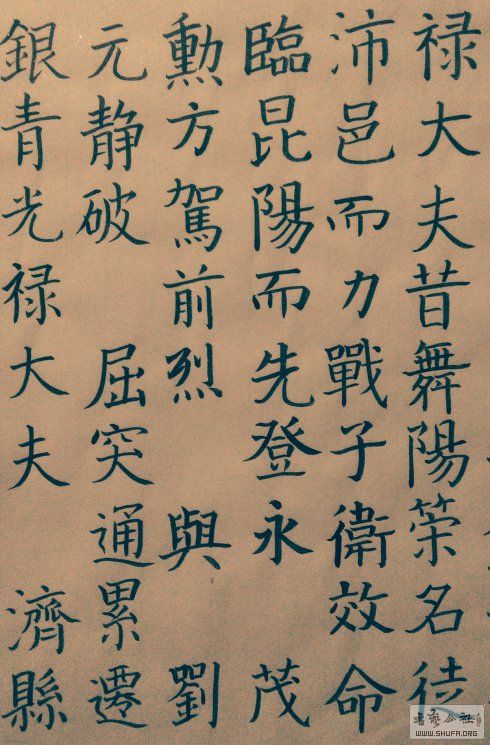 禄大夫昔舞陽策名
沛邑而力戰子衛效命
臨昆陽而先登永茂
勳方駕前烈與劉
元静破屈突通累遷
銀青光禄大夫濟縣
書藝公社
WWW.SHUFA.ORG